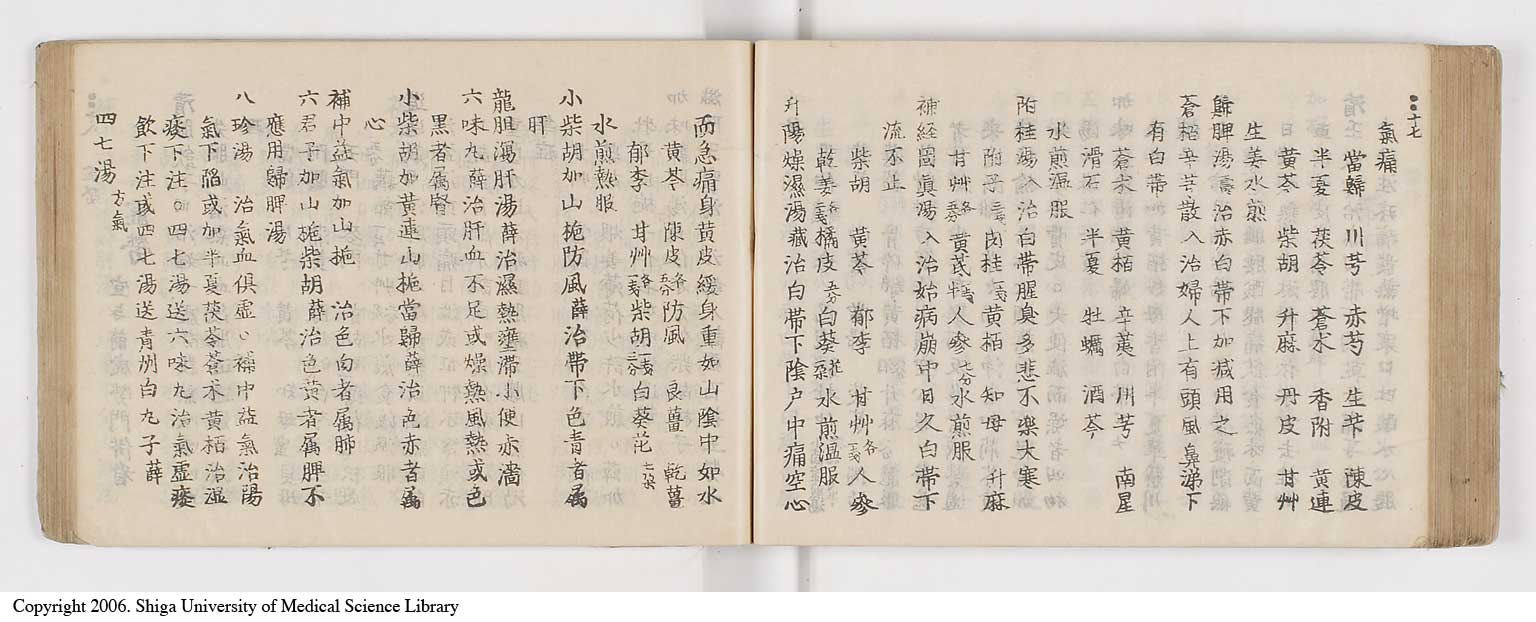 十七
氣痛
當歸 川芎 赤芍 生芐 陳皮
半夏 茯苓 蒼朮 香附 黄連
黄芩 柴胡 升麻 丹皮 甘艸
生姜水煎
歸脾湯 濟 治赤白帯下加減用之
蒼栢辛芎散 入 治婦人上有頭風鼻涕下
有白帯
蒼朮 黄栢 辛荑 川芎 南星
滑石 半夏 牡蠣 酒芩
水煎温服
附桂湯 治白帯腥臭多悲不楽大寒
附子三戋 肉桂一戋 黄栢 知母 升麻
甘艸各五分 黄芪一戋半 人參七分 水煎服
補経固眞湯 入 治始病崩中日久白帯下
流不止
柴胡 黄芩 郁李 甘艸各一戋 人參
乾姜各二戋 橘皮五分 白葵花 水煎温服
升陽燥濕湯 蔵 治白帯下陰户中痛空心
而急痛身黄皮緩身重如山陰中如水
黄芩 陳皮各五分 防風 良薑 乾薑
郁李 甘艸各一戋 柴胡 白葵花七朶
水煎熱服
小柴胡加山梔防風 薛 治帯下色青者属
肝
龍胆瀉肝湯 薛 治濕熱壅滞小便赤濇
六味九 薛 治肝血不足或燥熱風熱或色
黒者属腎
小柴胡加黄連山梔當歸 薛 治色赤者属
心
補中益氣加山梔 治色白者属肺
六君子加山梔柴胡 薛 治色黄者属脾不
應用歸脾湯
八珍湯 治氣血俱虚〇補中益氣治陽
氣下陥或加半夏茯苓蒼朮黄栢治濕
痰下注〇四七湯送六味九治氣虚痰
飲下注或四七湯送青州白九子 薛
四七湯 方氣
Copyright 2006. Shiga University of Medical Science Library